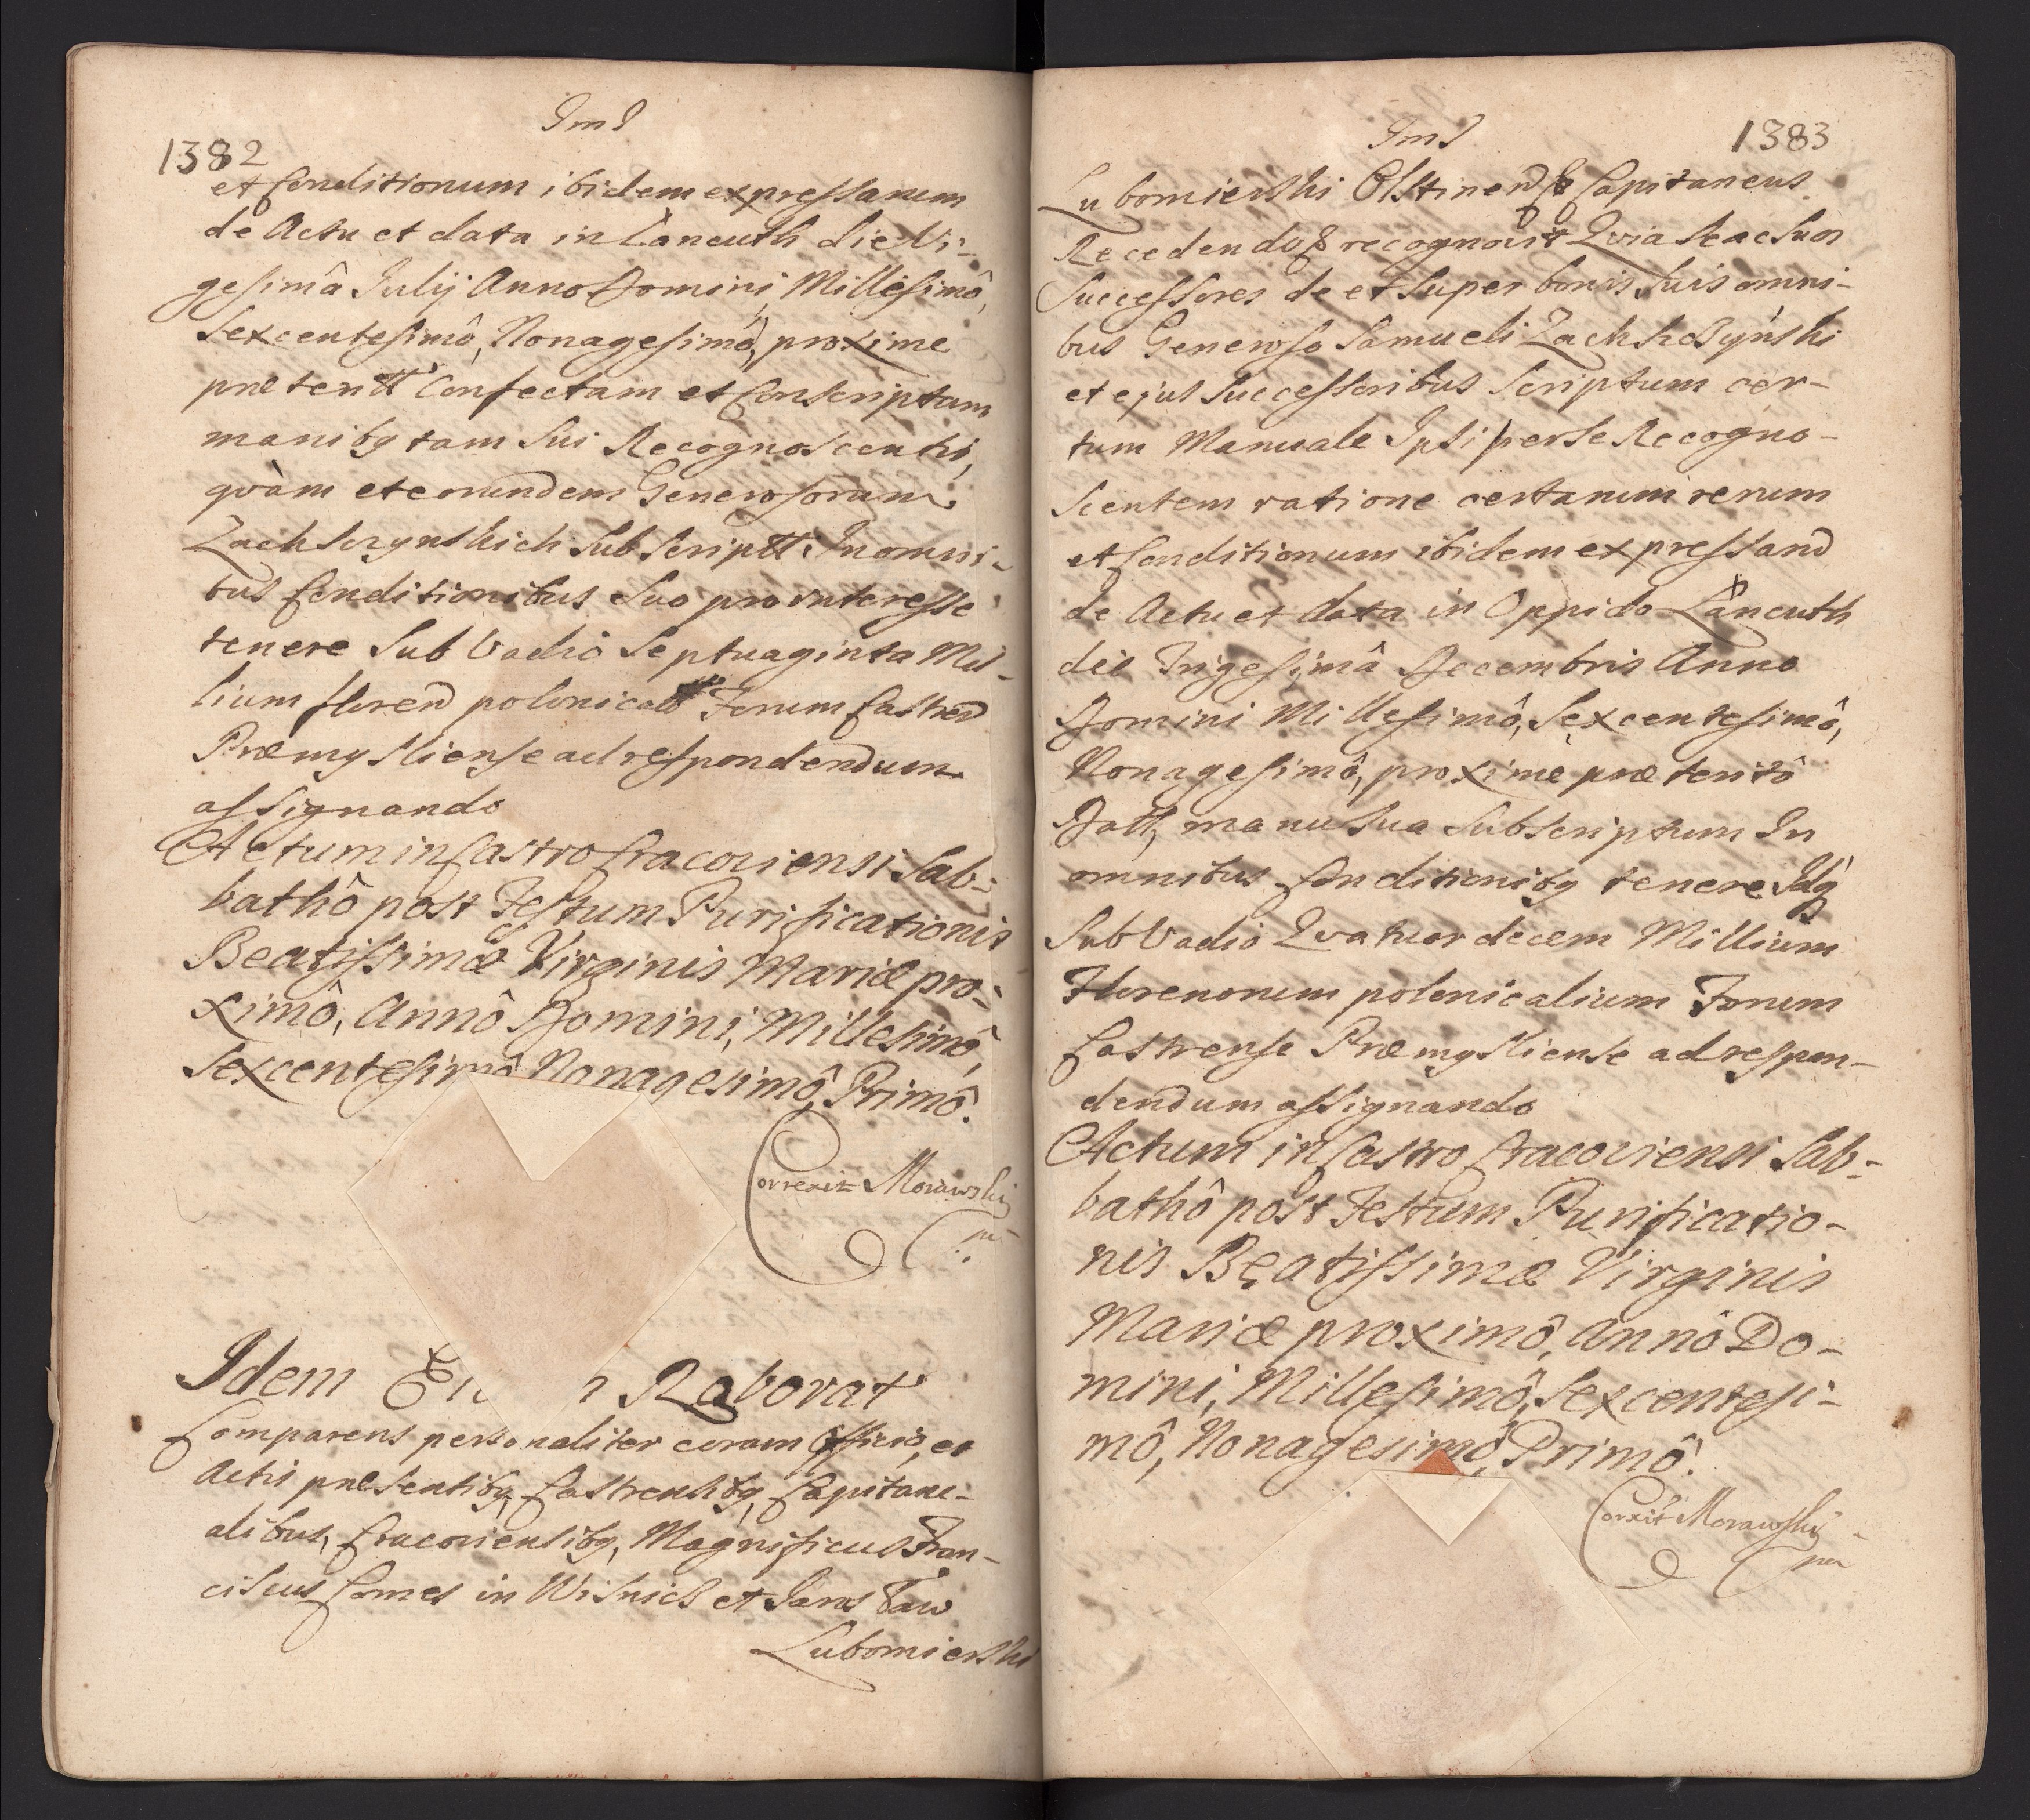 1382
et Conditionum ibidem expressarum
de Actu et data in Łancuth die Vi-
gesimâ Julij Anno Domini, Millesimô,
Sexcentesimô, Nonagesimô, proxime
præteritt Confectam et Conscriptam
manibq tam Sui Recognoscentis,
qvàm et eorundem Generosorum
Zachscrzynskich Subscriptt: In omni-
bus Conditionibus Suo pro interesse
tenere Sub Vadio Septuaginta Mil-
lium floren polonicall Forum Castren
Præmysliense ad respondendum
assignando
Actum in Castro Cracoviensi Sab-
bathô post Festum Purificationis
Beatissimæ Virginis Mariæ pro-
ximô, Annô Domini, Millesimô,
Sexcentesimô Nonagesimô, Primô.
Correxit Morawski
mp
Idem Roborat
Comparens personaliter coram Officio, et
Actis præsentibq, Castrensibq, Capitane-
alibus, Cracoviensibq, Magnificus Fran-
ciscus Comes in Wisnicz et Jaros Taw
Lubomierski
1383
Lubomierski Olstinen Capitaneus
Recedendo recognovit Qvia Se ac Suos
Successores de et Super bonis Suis omni-
bus Generoso Samueli Zachskczynski
et ejus Successoribus Scriptum cer-
tum Manuale Ipsi per Se Recogno-
scentem ratione certarum rerum
et Conditionum ibidem expressan
de Actu et data in Oppido Łancuth
die Trigesimâ Decembris Anno
Domini Millesimô, Sexcentesimô,
Nonagesimô, proximè præteritô
Datt, manu Sua Subscriptum In
omnibus Conditionibq tenere Idq
Sub Vadio Qvatuordecem Millium
Florenorum polonicalium Forum
Castrense Præmysliense ad respon-
dendum assignando
Actum in Castro Cracoviensi Sab-
bathô post Festum Purificatio-
nis Beatissimæ Virginis
Mariæ proximô, Annô Do-
mini, Millesimô, Sexcentesi-
mô, Nonagesimô, Primô.
Corxit Morawski
mp